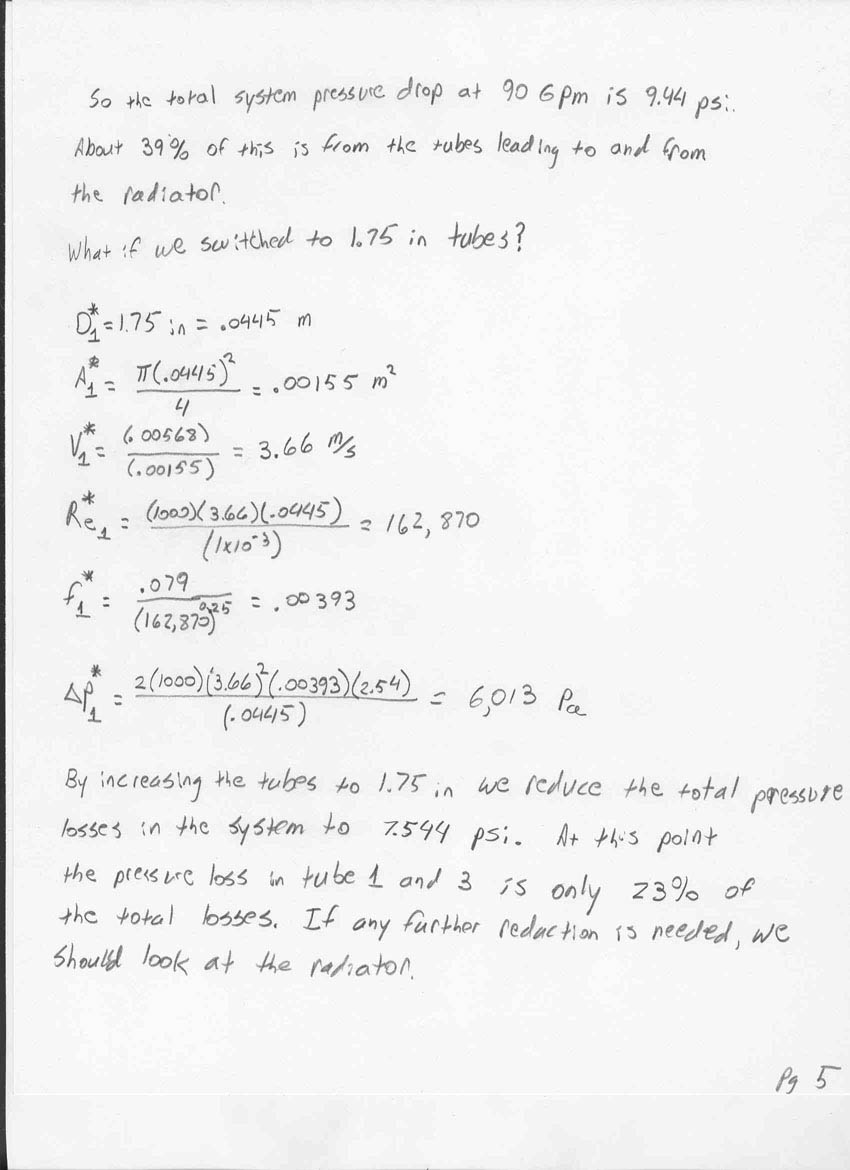 So the total system pressure drop at 90 GPm is 9.44 psi.
About 39% of this is from the tubes leading to and from
the radiator.
What if we switched to 1.75 in tubes?
D₁* = 1.75 in = .0445 m
A₁* = π(.0445)² / 4 = .00155 m²
V₁* = (.00568) / (.00155) = 3.66 m/s
Re₁* = (1000)(3.66)(.0445) / (1x10⁻³) = 162,870
f₁* = .079 / (162,870)^0.25 = .00393
ΔP₁* = 2(1000)(3.66)²(.00393)(2.54) / (.0445) = 6,013 Pa
By increasing the tubes to 1.75 in we reduce the total pressure
losses in the system to 7.544 psi. At this point
the pressure loss in tube 1 and 3 is only 23% of
the total losses. If any further reduction is needed, we
should look at the radiator.
Pg 5